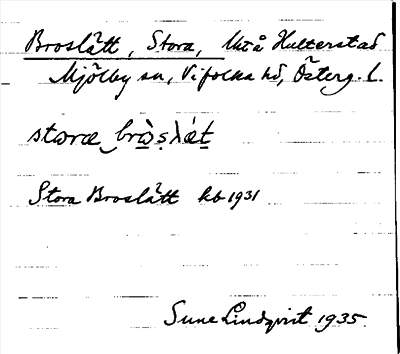 Broslätt, Stora, Utå Hulterstad
Mjölby sn, Vifolka hd, Österg. l.
staræ bròsλǽt
Stora Broslätt kb 1931
Sune Lindqvist 1935.